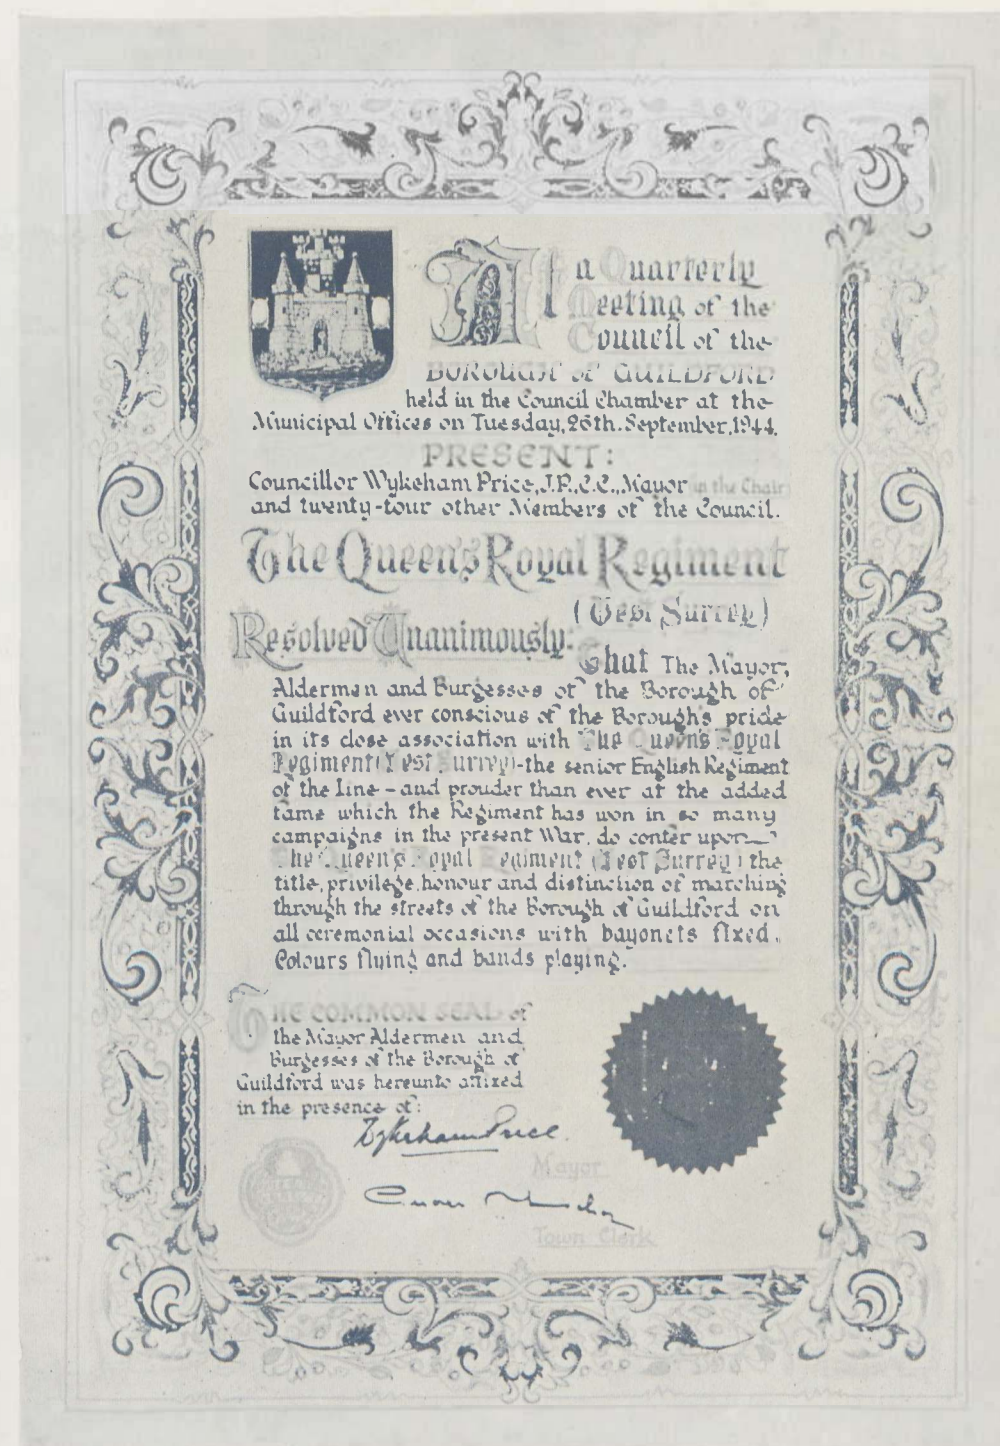 At a Quarterly
Meeting of the
Council of the
BOROUGH OF GUILDFORD
held in the Council Chamber at the
Municipal Offices on Tuesday, 26th. September, 1944.
PRESENT:
Councillor Wykeham Price, J.P., C.C., Mayor in the Chair
and twenty-four other Members of the Council.
The Queen's Royal Regiment
(West Surrey)
Resolved Unanimously:
That The Mayor,
Aldermen and Burgesses of the Borough of
Guildford ever conscious of the Borough's pride
in its close association with The Queen's Royal
Regiment (West Surrey) - the senior English Regiment
of the Line - and prouder than ever at the added
fame which the Regiment has won in so many
campaigns in the present War, do confer upon
The Queen's Royal Regiment (West Surrey) the
title, privilege, honour and distinction of marching
through the streets of the Borough of Guildford on
all ceremonial occasions with bayonets fixed,
Colours flying and bands playing.
THE COMMON SEAL of
the Mayor Aldermen and
Burgesses of the Borough of
Guildford was hereunto affixed
in the presence of:
Wykeham Price.
Mayor
Town Clerk